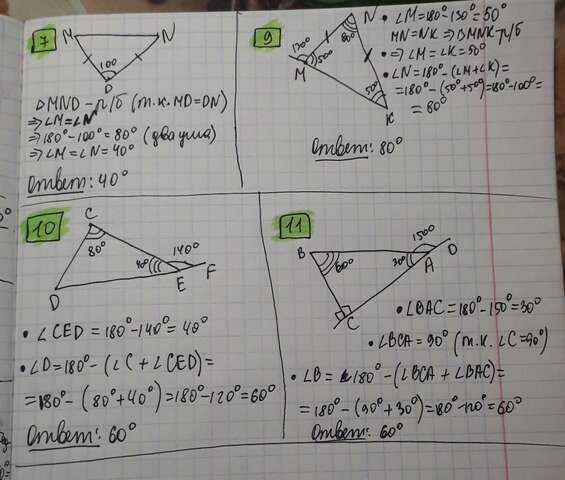 7
M
N
100
D
△MND - р/б (т.к. MD=DN)
⇒ ∠M=∠N
⇒ 180°-100°=80° (два угла)
⇒ ∠M=∠N=40°
Ответ: 40°
9
N
80°
130°
50°
M
50°
K
• ∠M=180°-130°=50°
MN=NK ⇒ △MNK-р/б
• ⇒ ∠M=∠K=50°
• ∠N=180°-(∠M+∠K)=
=180°-(50°+50°)=180°-100°=
=80°
Ответ: 80°
10
C
80°
40°
140°
D
E
F
• ∠CED=180°-140°=40°
• ∠D=180°-(∠C+∠CED)=
=180°-(80°+40°)=180°-120°=60°
Ответ: 60°
11
150°
B
60°
30°
A
D
C
• ∠BAC=180°-150°=30°
• ∠BCA=90° (т.к. ∠C=90°)
• ∠B=180°-(∠BCA+∠BAC)=
=180°-(90°+30°)=180°-120°=60°
Ответ: 60°